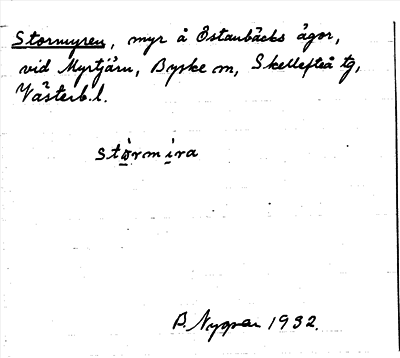 Stormyren, myr å Östanbäcks ägor,
vid Myrtjärn, Byske sn, Skellefteå tg,
Västerb. l.
stòrmira
1932.